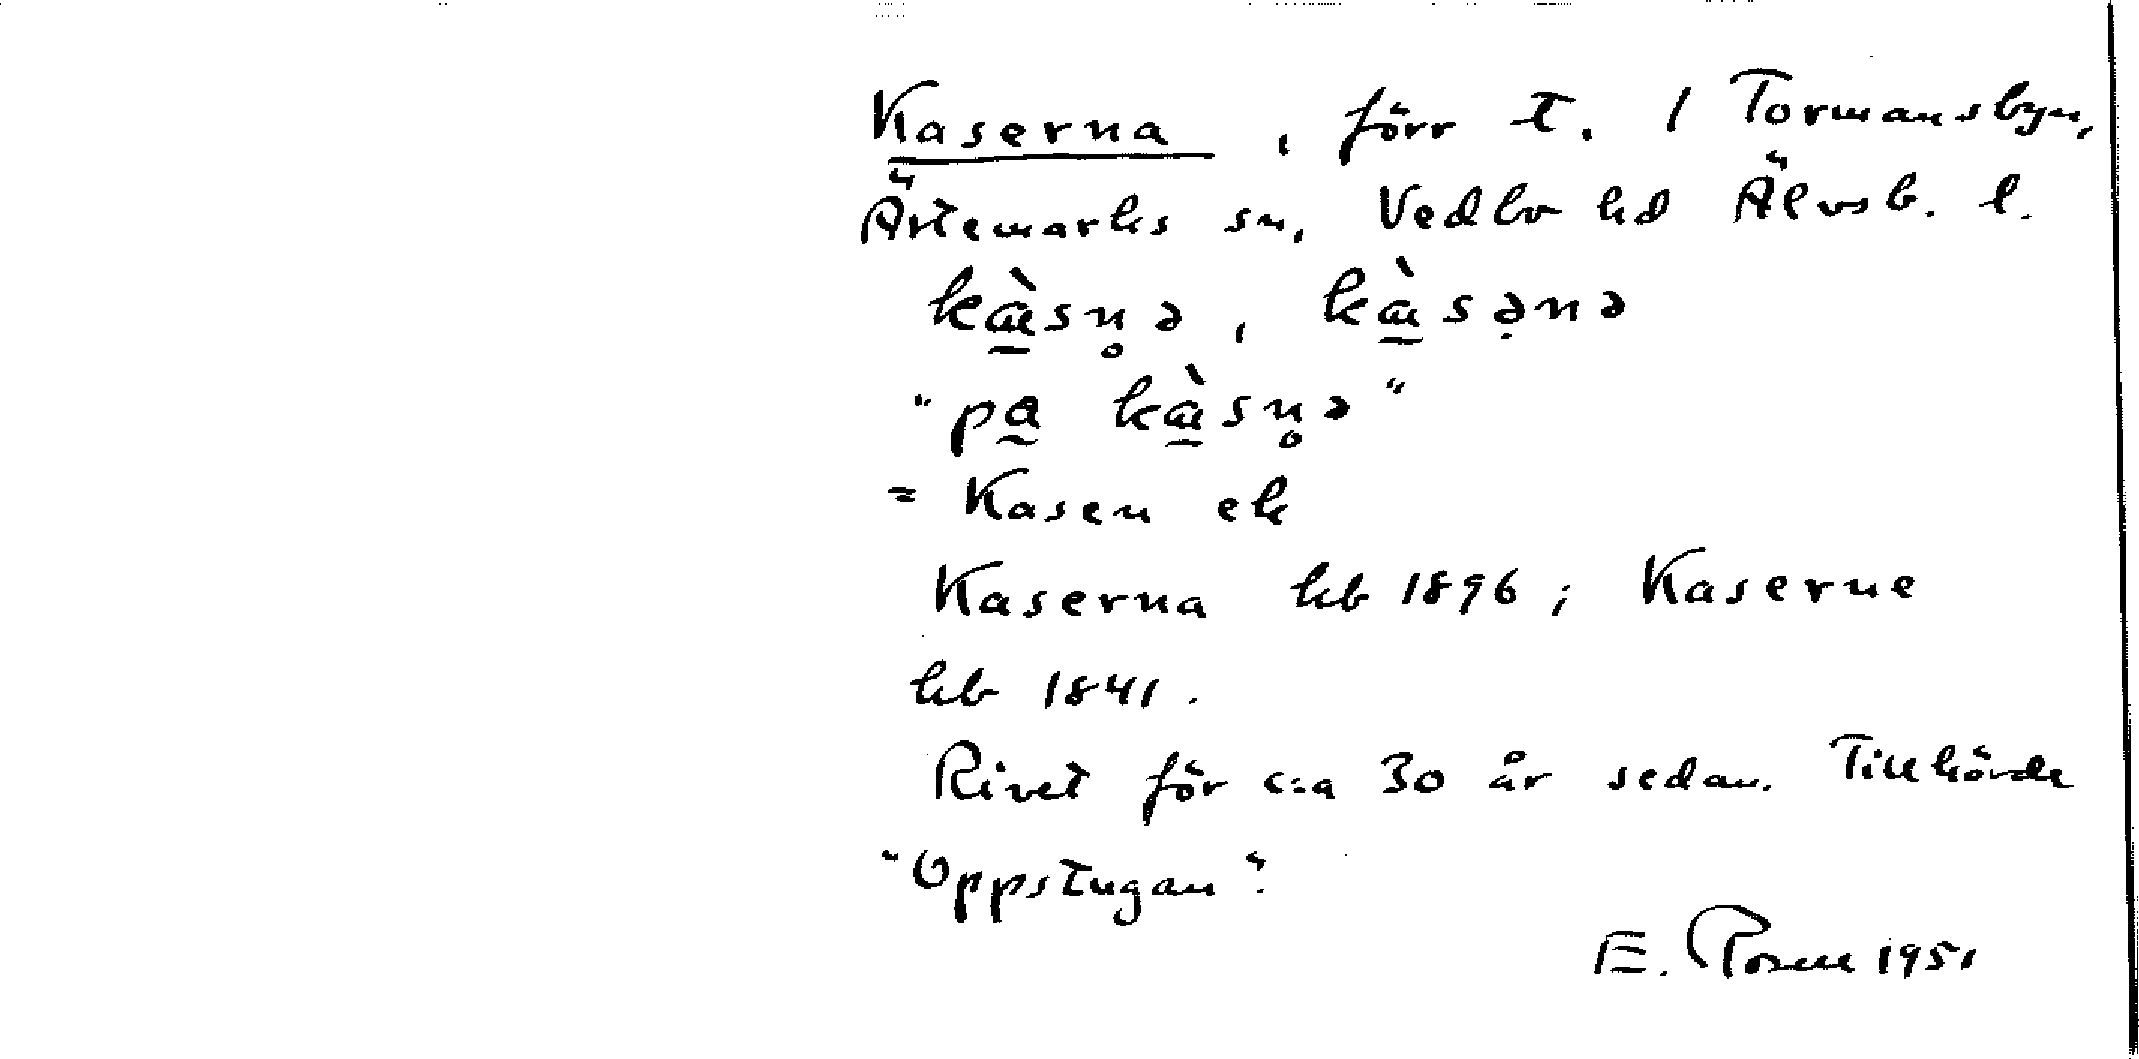 Kaserna, förr t. / Tormansbyn,
Ärtemarks sn, Vedbo hd Älvsb. l.
kæ̀sn̥ə, kæ̀sənə
"pa kæ̀sn̥ə"
= Kasen ek
Kaserna hb 1896; Kaserne
hb 1841.
Rivet för c:a 30 år sedan. Tillhörde
"Oppstugan".
E. Rosell 1951